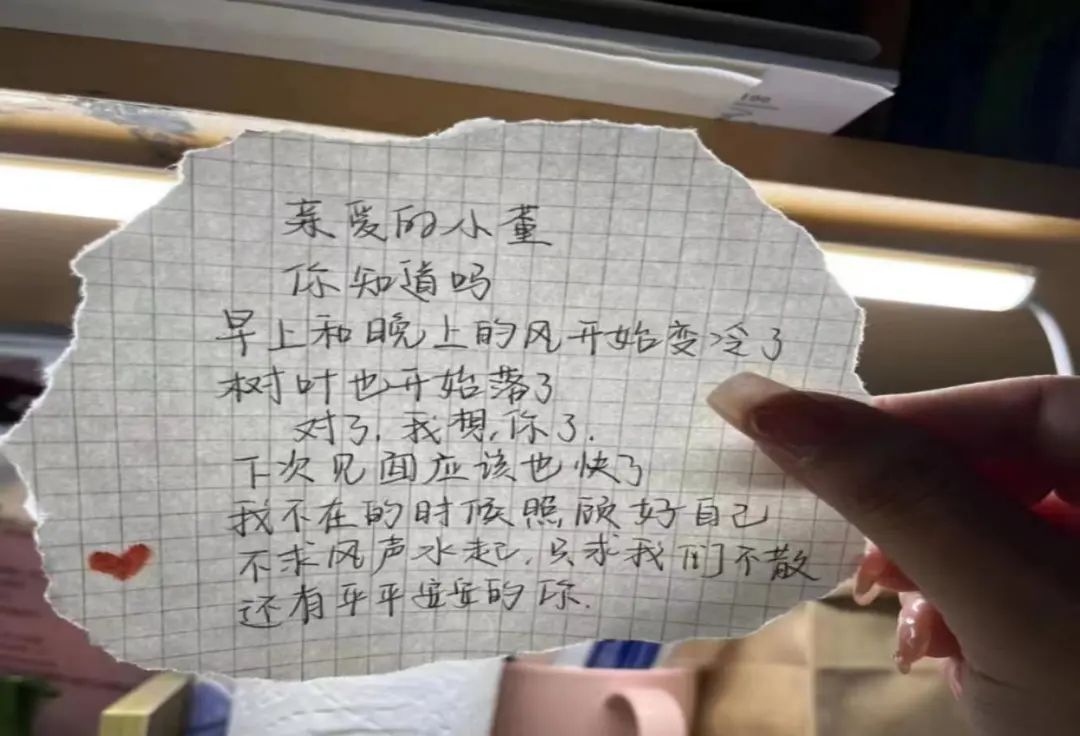 100
亲爱的小董
你知道吗
早上和晚上的风开始变冷了
树叶也开始落了
对了,我想,你了.
下次见面应该也快了
我不在的时候照顾好自己
不求风声水起,只求我们不散
还有平平安安的你.